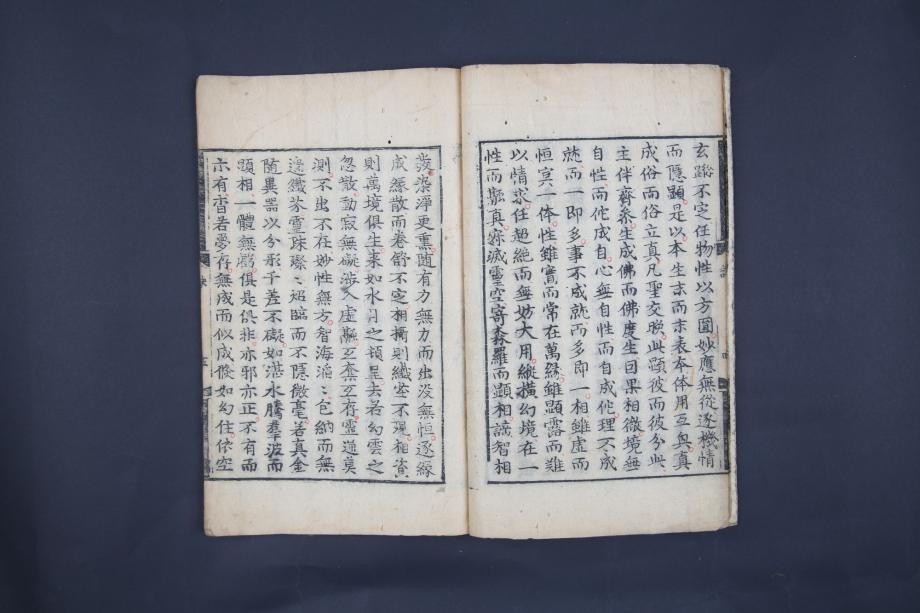 玄蹤不定任物性以方圓妙應無從逐機情
而隱顯是以本生末而末表本体用互興真
成俗而俗立真凡聖交暎此顯彼而彼分此
主伴齊叅生成佛而佛度生因果相徹境無
自性而佗成自心無自性而自成佗理不成
就而一即多事不成就而多即一相雖虛而
恒冥一体性雖實而常在萬緣雖顯露而難
以情求任超絶而無妨大用縱橫幻境在一
性而融真寂滅靈空寄森羅而顯相識智相
發染淨更熏随有力無力而出沒無恒逐緣
成緣散而卷舒不定相攝則纖塵不現相資
則萬境俱生来如水月之頓呈去若幻雲之
忽散動寂無礙涉入虛融互奪互存靈通莫
測不出不在妙性無方智海滔〻包納而無
邊纖芥靈珠璨〻炤臨而不隱微毫若真金
随異器以分形千差不礙如湛水騰羣波而
顯相一體無虧俱是俱非亦邪亦正不有而
示有杳若夢存無成而似成倐如幻住依空